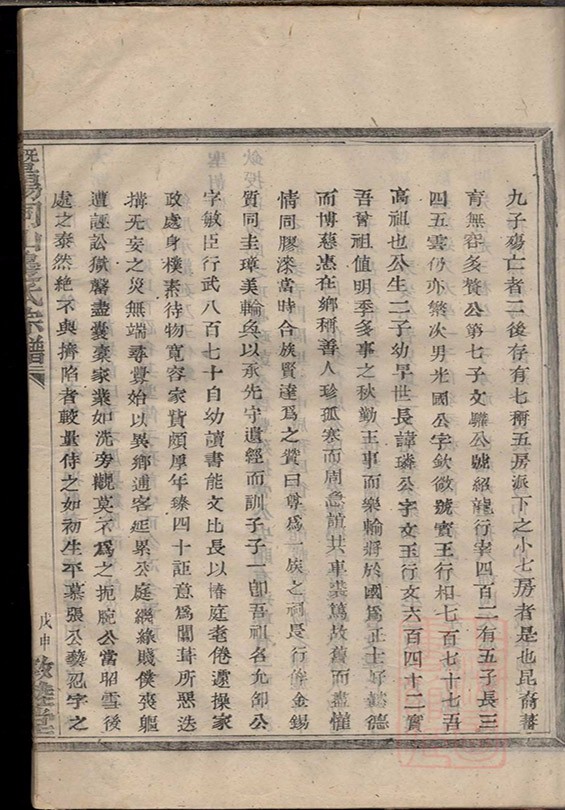 九子殤亡者二後存有七衍五房派下之小七房者是也昆裔蕃
育無容多贅公第七子文驊公號紹龍行宰四百二有五子長三
四五雲仍亦繁次男光國公字欽徵號賓王行相七百七十七吾
高祖也公生二子幼早世長諱璘公字文玉行文六百四十二實
吾曾祖值明季多事之秋勤王事而樂輸將於國為正士好懿德
而博慈惠在鄉稱善人珍孤寒而周急誼共車裘篤故舊而盡懽
情同膠漆當時合族賢達為之贊曰尊為一族之祠長行侔金錫
質同圭璋美輪奐以承先守遺經而訓子子一即吾祖名允御公
字敏臣行武八百七十自幼讀書能文比長以椿庭耄倦還操家
政處身樸素待物寬容家貲頗厚年臻四十詎意為闒茸所惡迭
搆无妄之災無端尋釁始以異鄉逋客延累公庭繼緣賤僕喪軀
遭誣訟獄罄盡囊橐家業如洗旁觀莫不為之扼腕公當昭雪後
處之泰然絶不與擠陷者較量待之如初生平慕張公藝忍字之
暨陽
氏宗譜
戊申